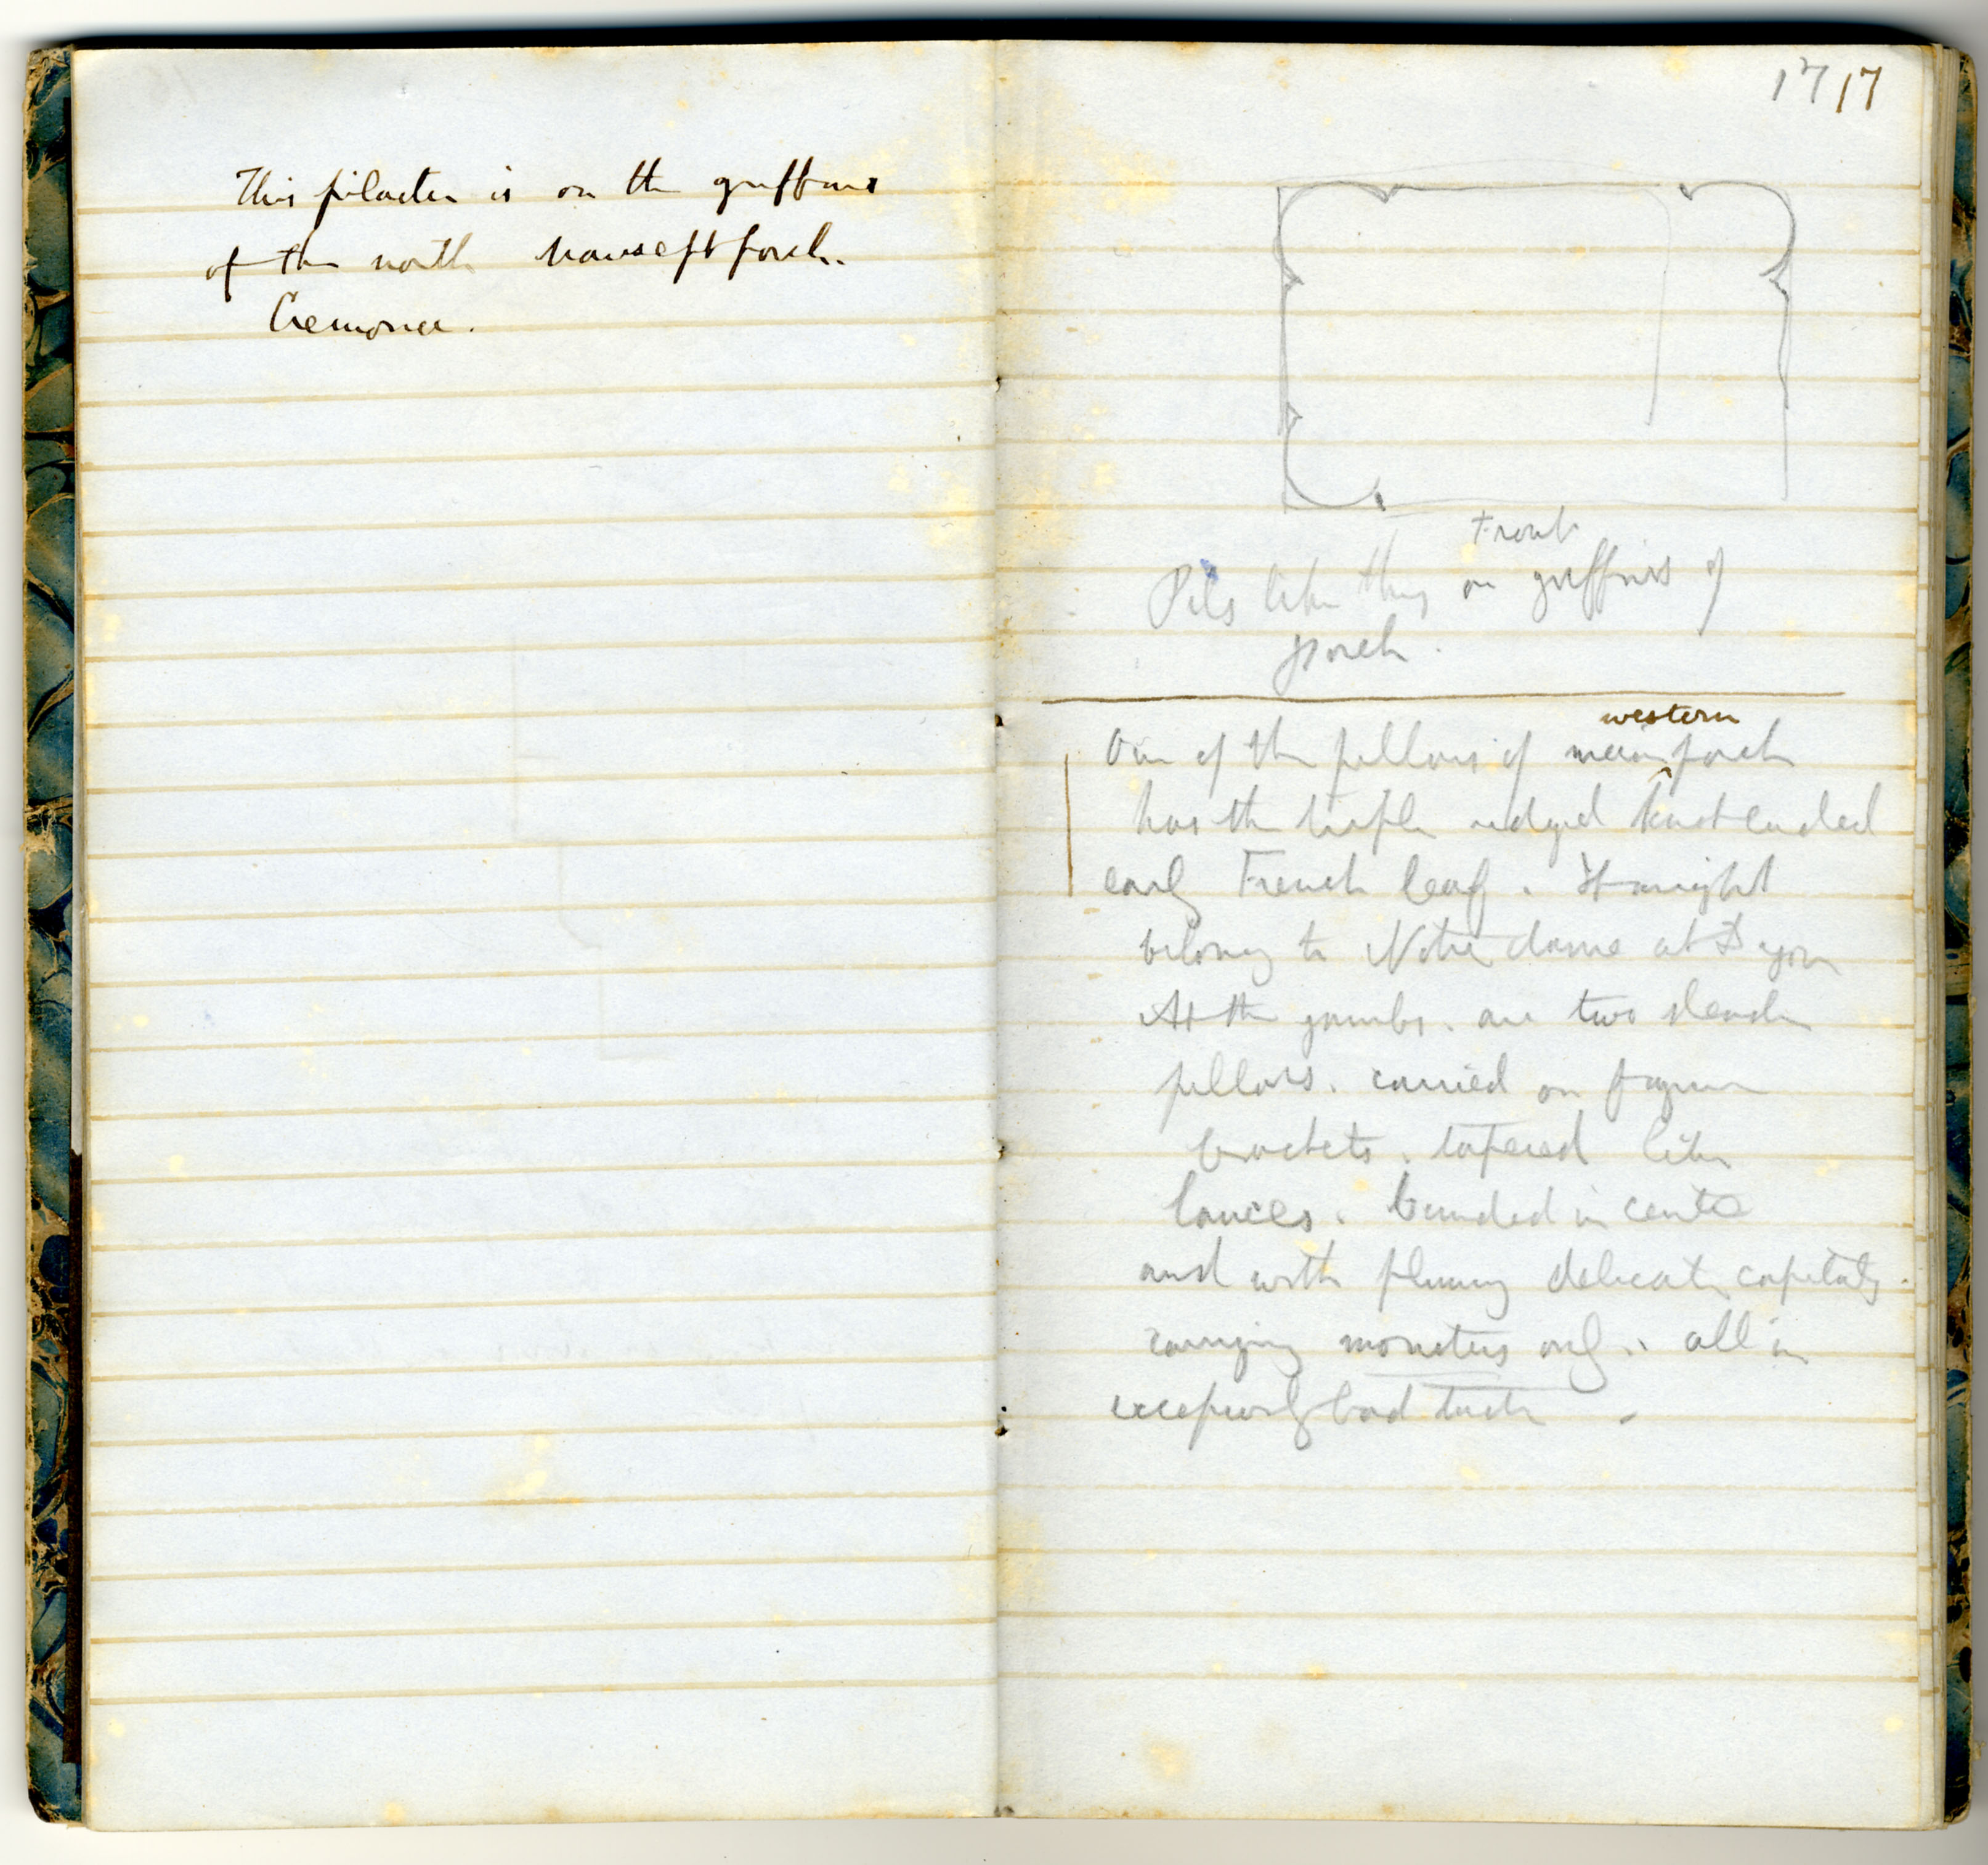 This pilaster is on the griffons
of the north transept porch.
Cremona.
17 17
Front
Pils like this on griffins of
porch.
western
One of the pillars of main porch
has the triple ridged knot ended
early French leaf. It might
belong to Notre dame at Dijon
At the jambs. are two slender
pillars. carried on figure
brackets. tapered like
lances. banded in centre
and with plumy delicate capitals.
carrying monsters only. all in
excessively bad taste -